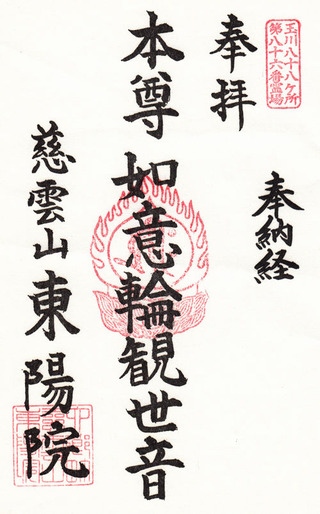 玉川八十八ヶ所
第八十六番霊場
奉拝
奉納経
本尊 如意輪観世音
慈雲山 東陽院